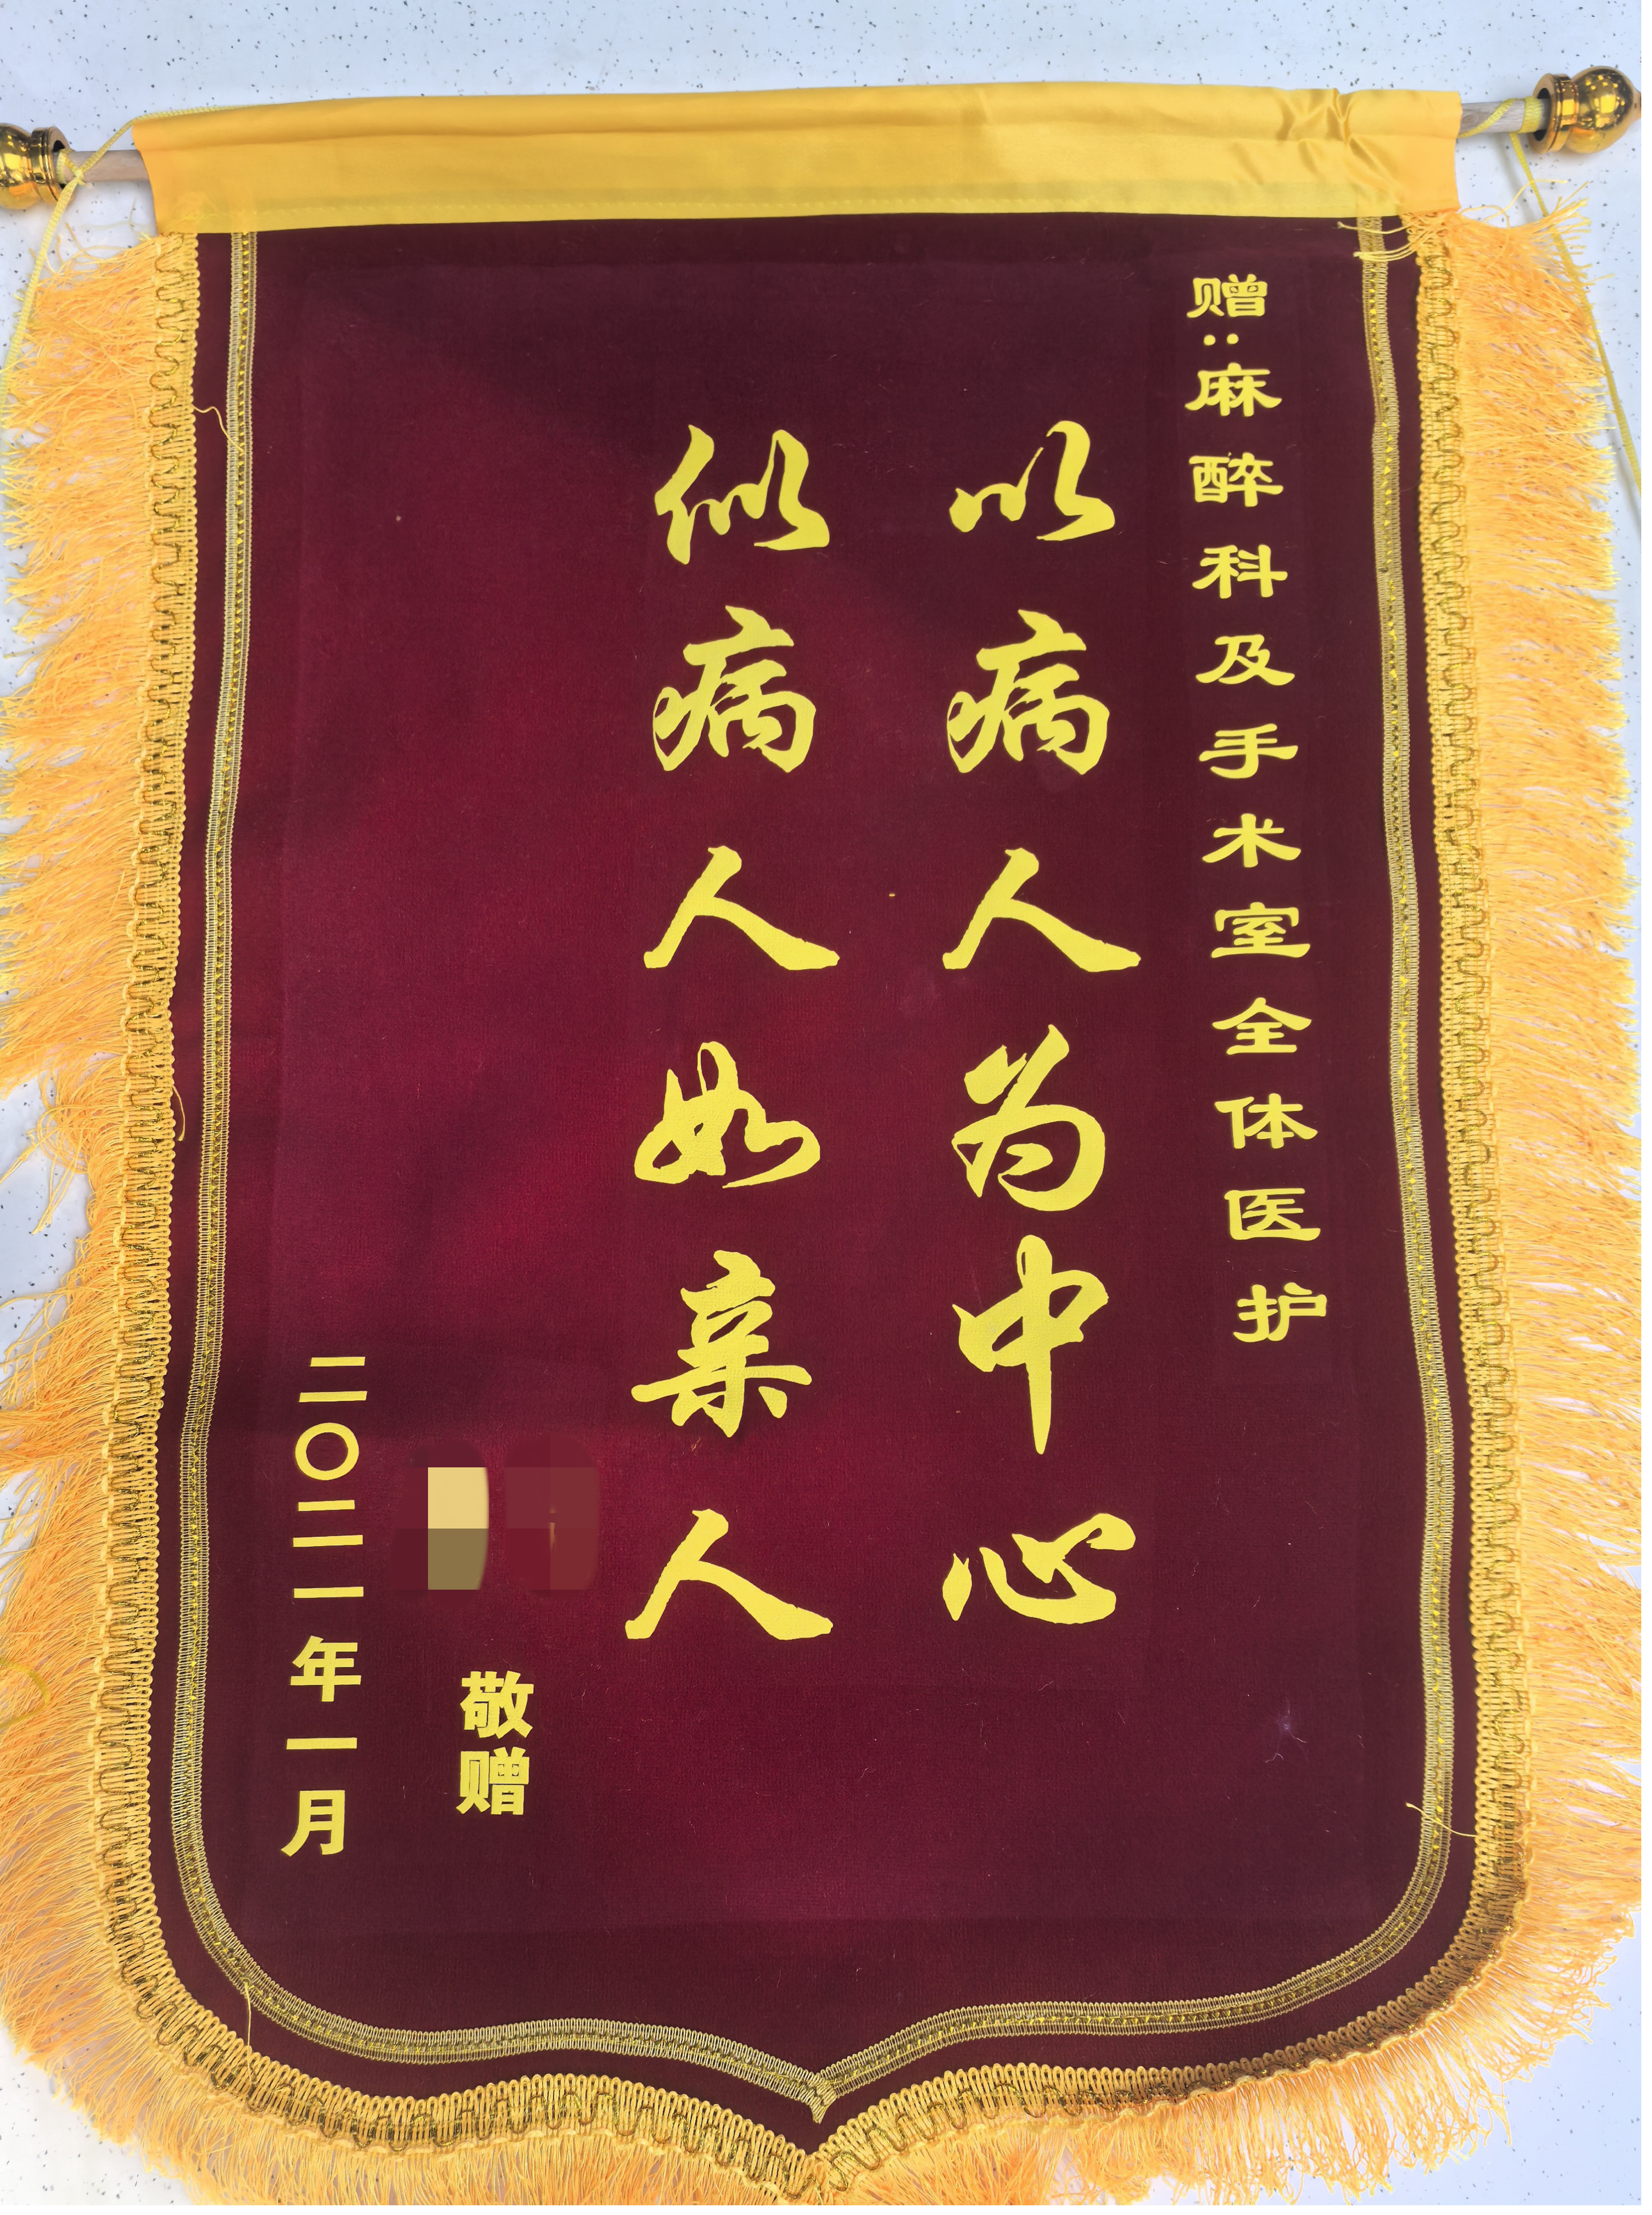 赠:麻醉科及手术室全体医护
以病人为中心
似病人如亲人
敬赠
二〇二一年一月